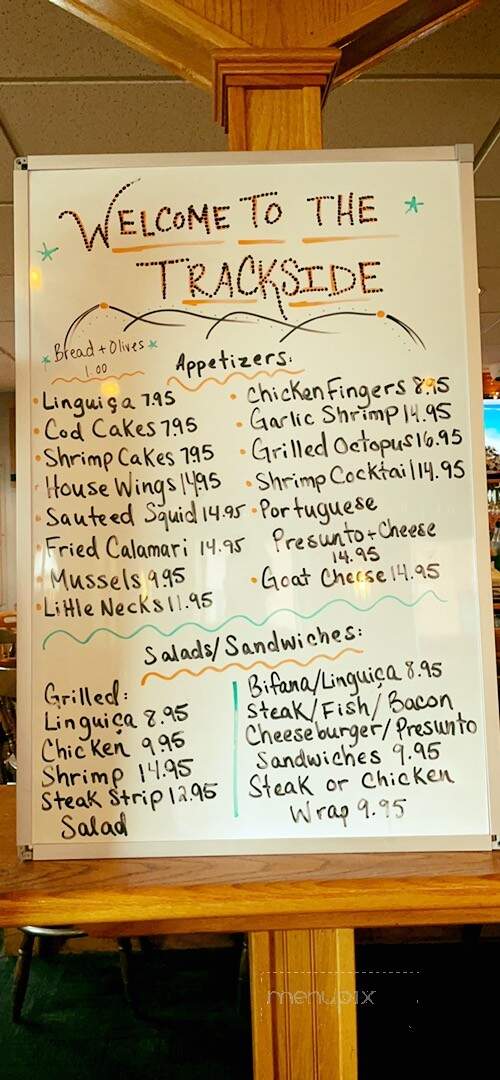 WELCOME TO THE
TRACKSIDE
Bread + Olives
1.00
Appetizers:
Linguiça 7.95
Cod Cakes 7.95
Shrimp Cakes 7.95
House Wings 14.95
Sauteed Squid 14.95
Fried Calamari 14.95
Mussels 9.95
Little Necks 11.95
Chicken Fingers 8.95
Garlic Shrimp 14.95
Grilled Octopus 16.95
Shrimp Cocktail 14.95
Portuguese
Presunto + Cheese
14.95
Goat Cheese 14.95
Salads/Sandwiches:
Grilled:
Linguiça 8.95
Chicken 9.95
Shrimp 14.95
Steak Strip 12.95
Salad
Bifana/Linguiça 8.95
Steak/Fish/Bacon
Cheeseburger/Presunto
Sandwiches 9.95
Steak or Chicken
Wrap 9.95
menupix